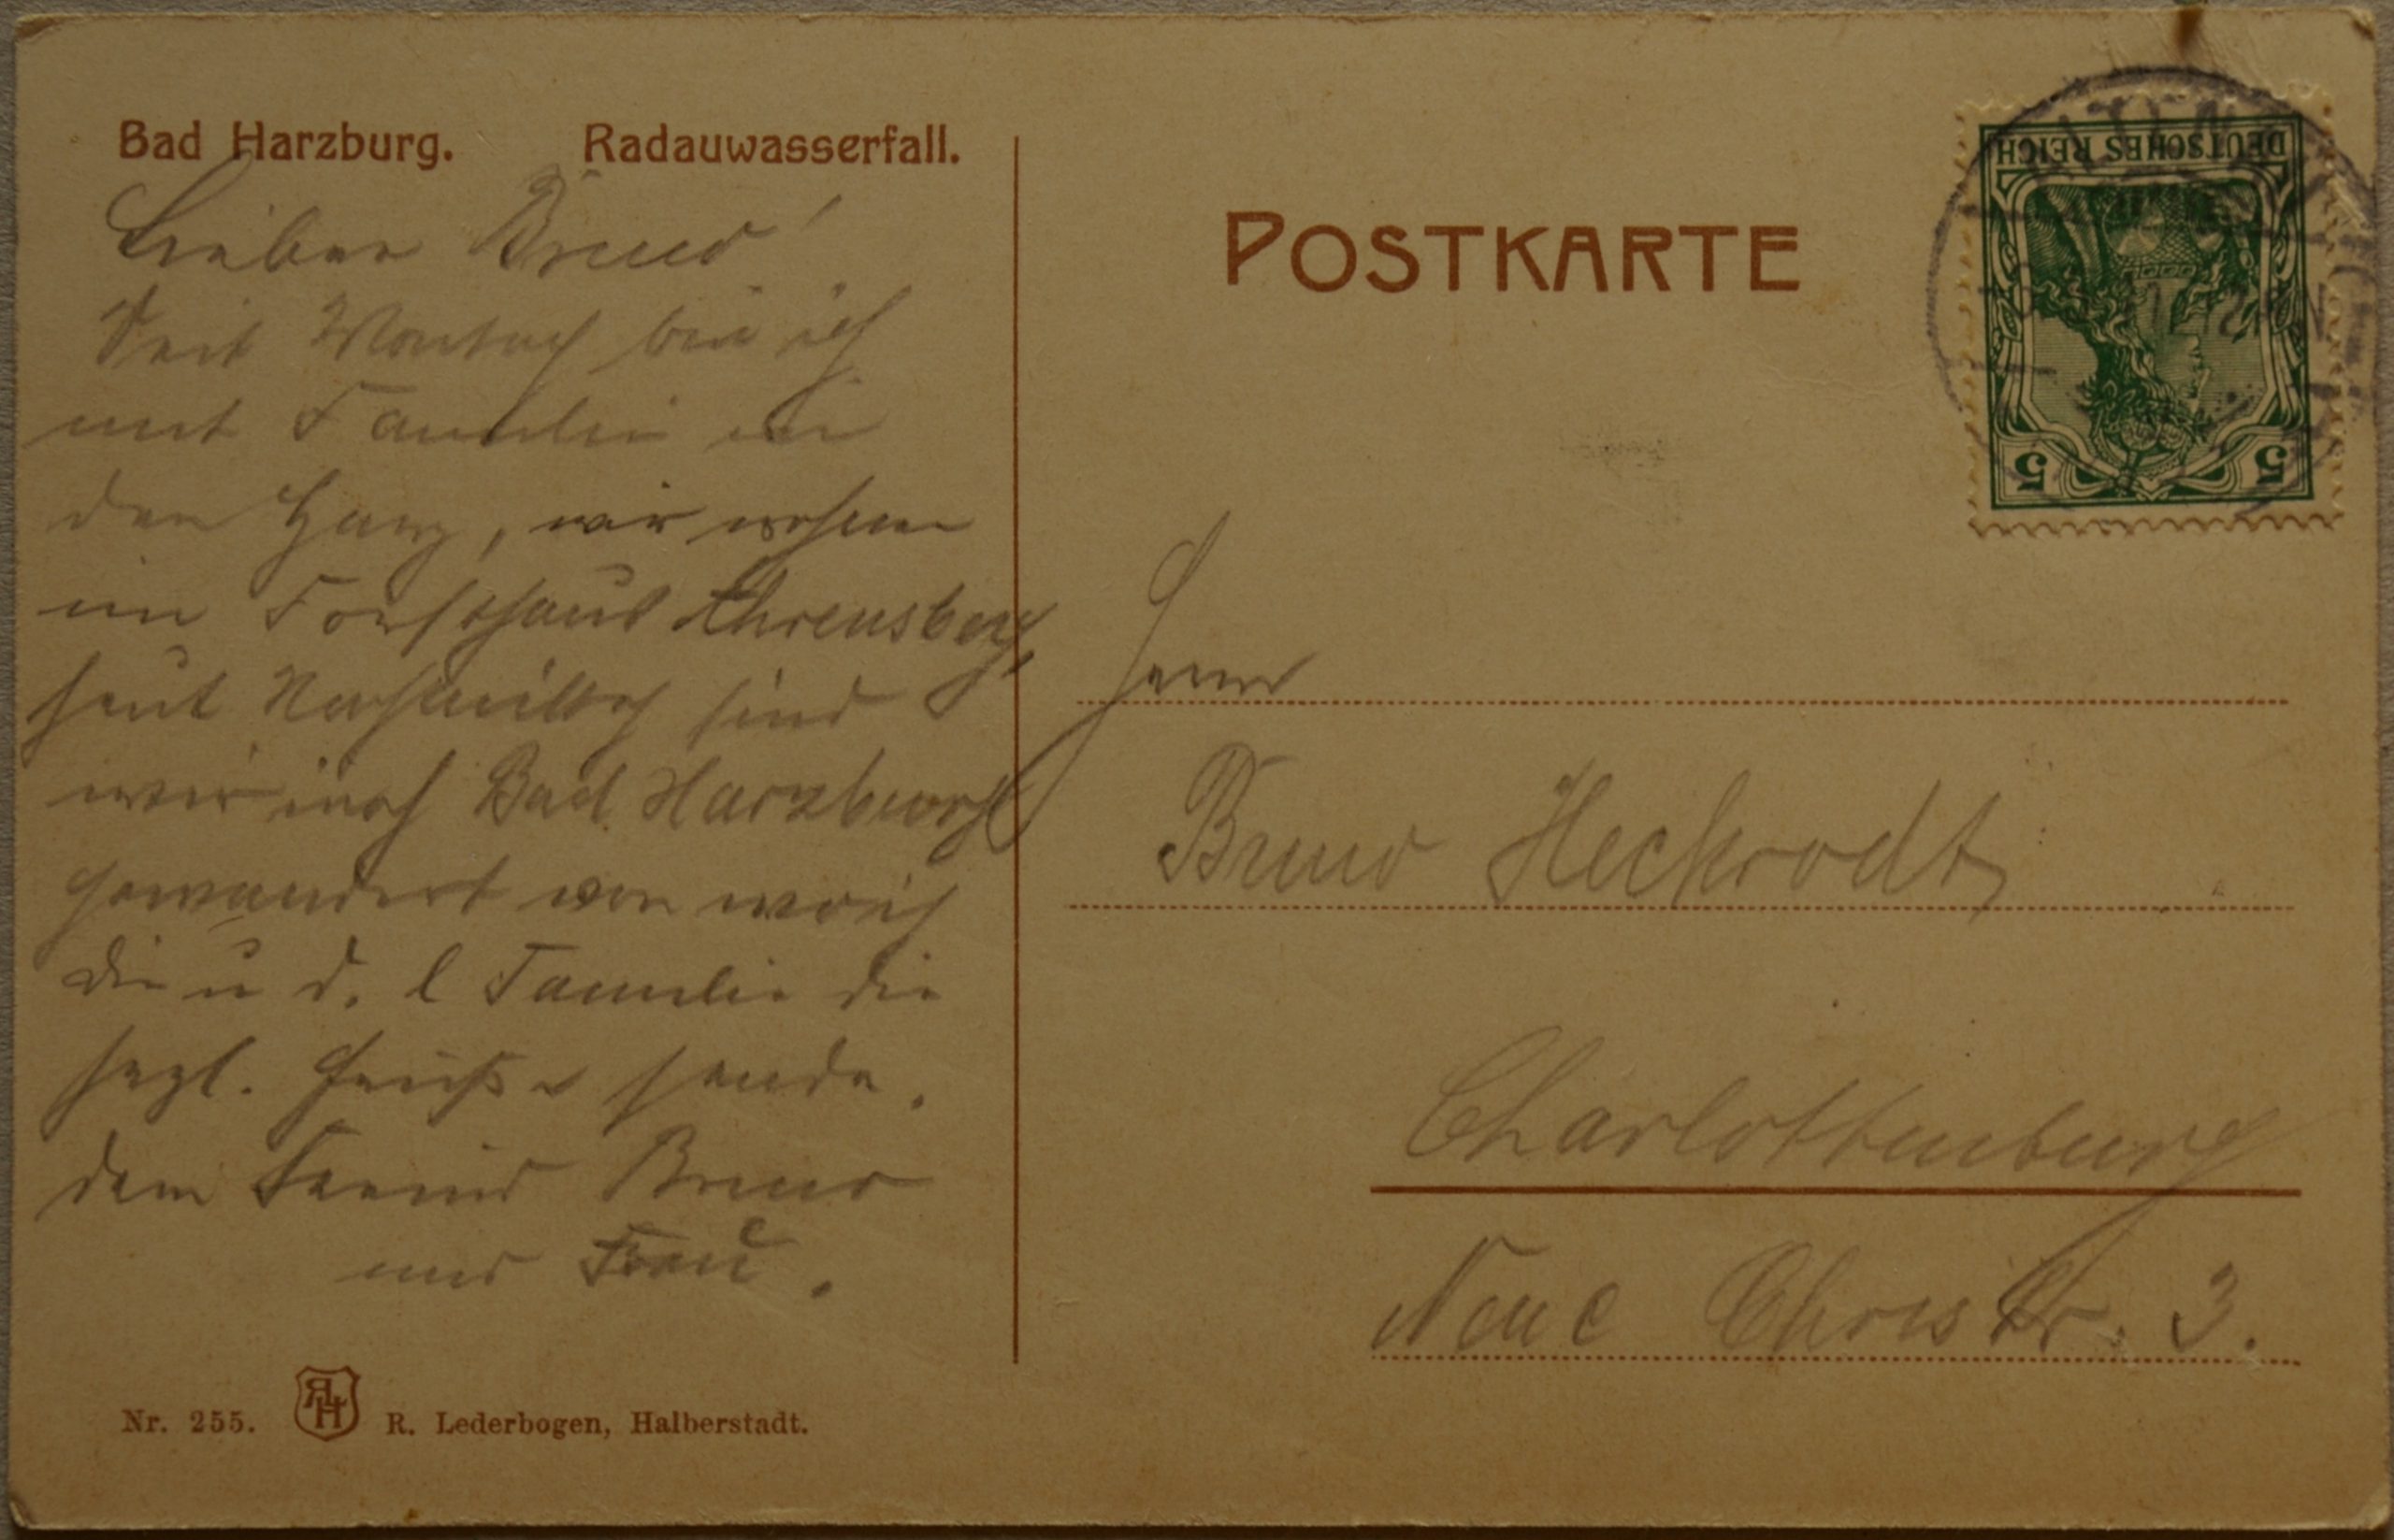 Bad Harzburg. Radauwasserfall.
Lieber Bruno!
Seit Montag bin ich
mit Familie in
den Harz, wir wohnen
im Forsthaus Ehrensberg,
heut Nachmittag sind
wir nach Bad Harzburg
gewandert von wo ich
Dir u d. l Familie die
hezl. Grüße sende.
Dein Freund Bruno
und Frau.
Nr. 255. R. Lederbogen, Halberstadt.
POSTKARTE
DEUTSCHES REICH
5 5
Herrn
Bruno Heckrodt
Charlottenburg
Neue Christstr. 3.